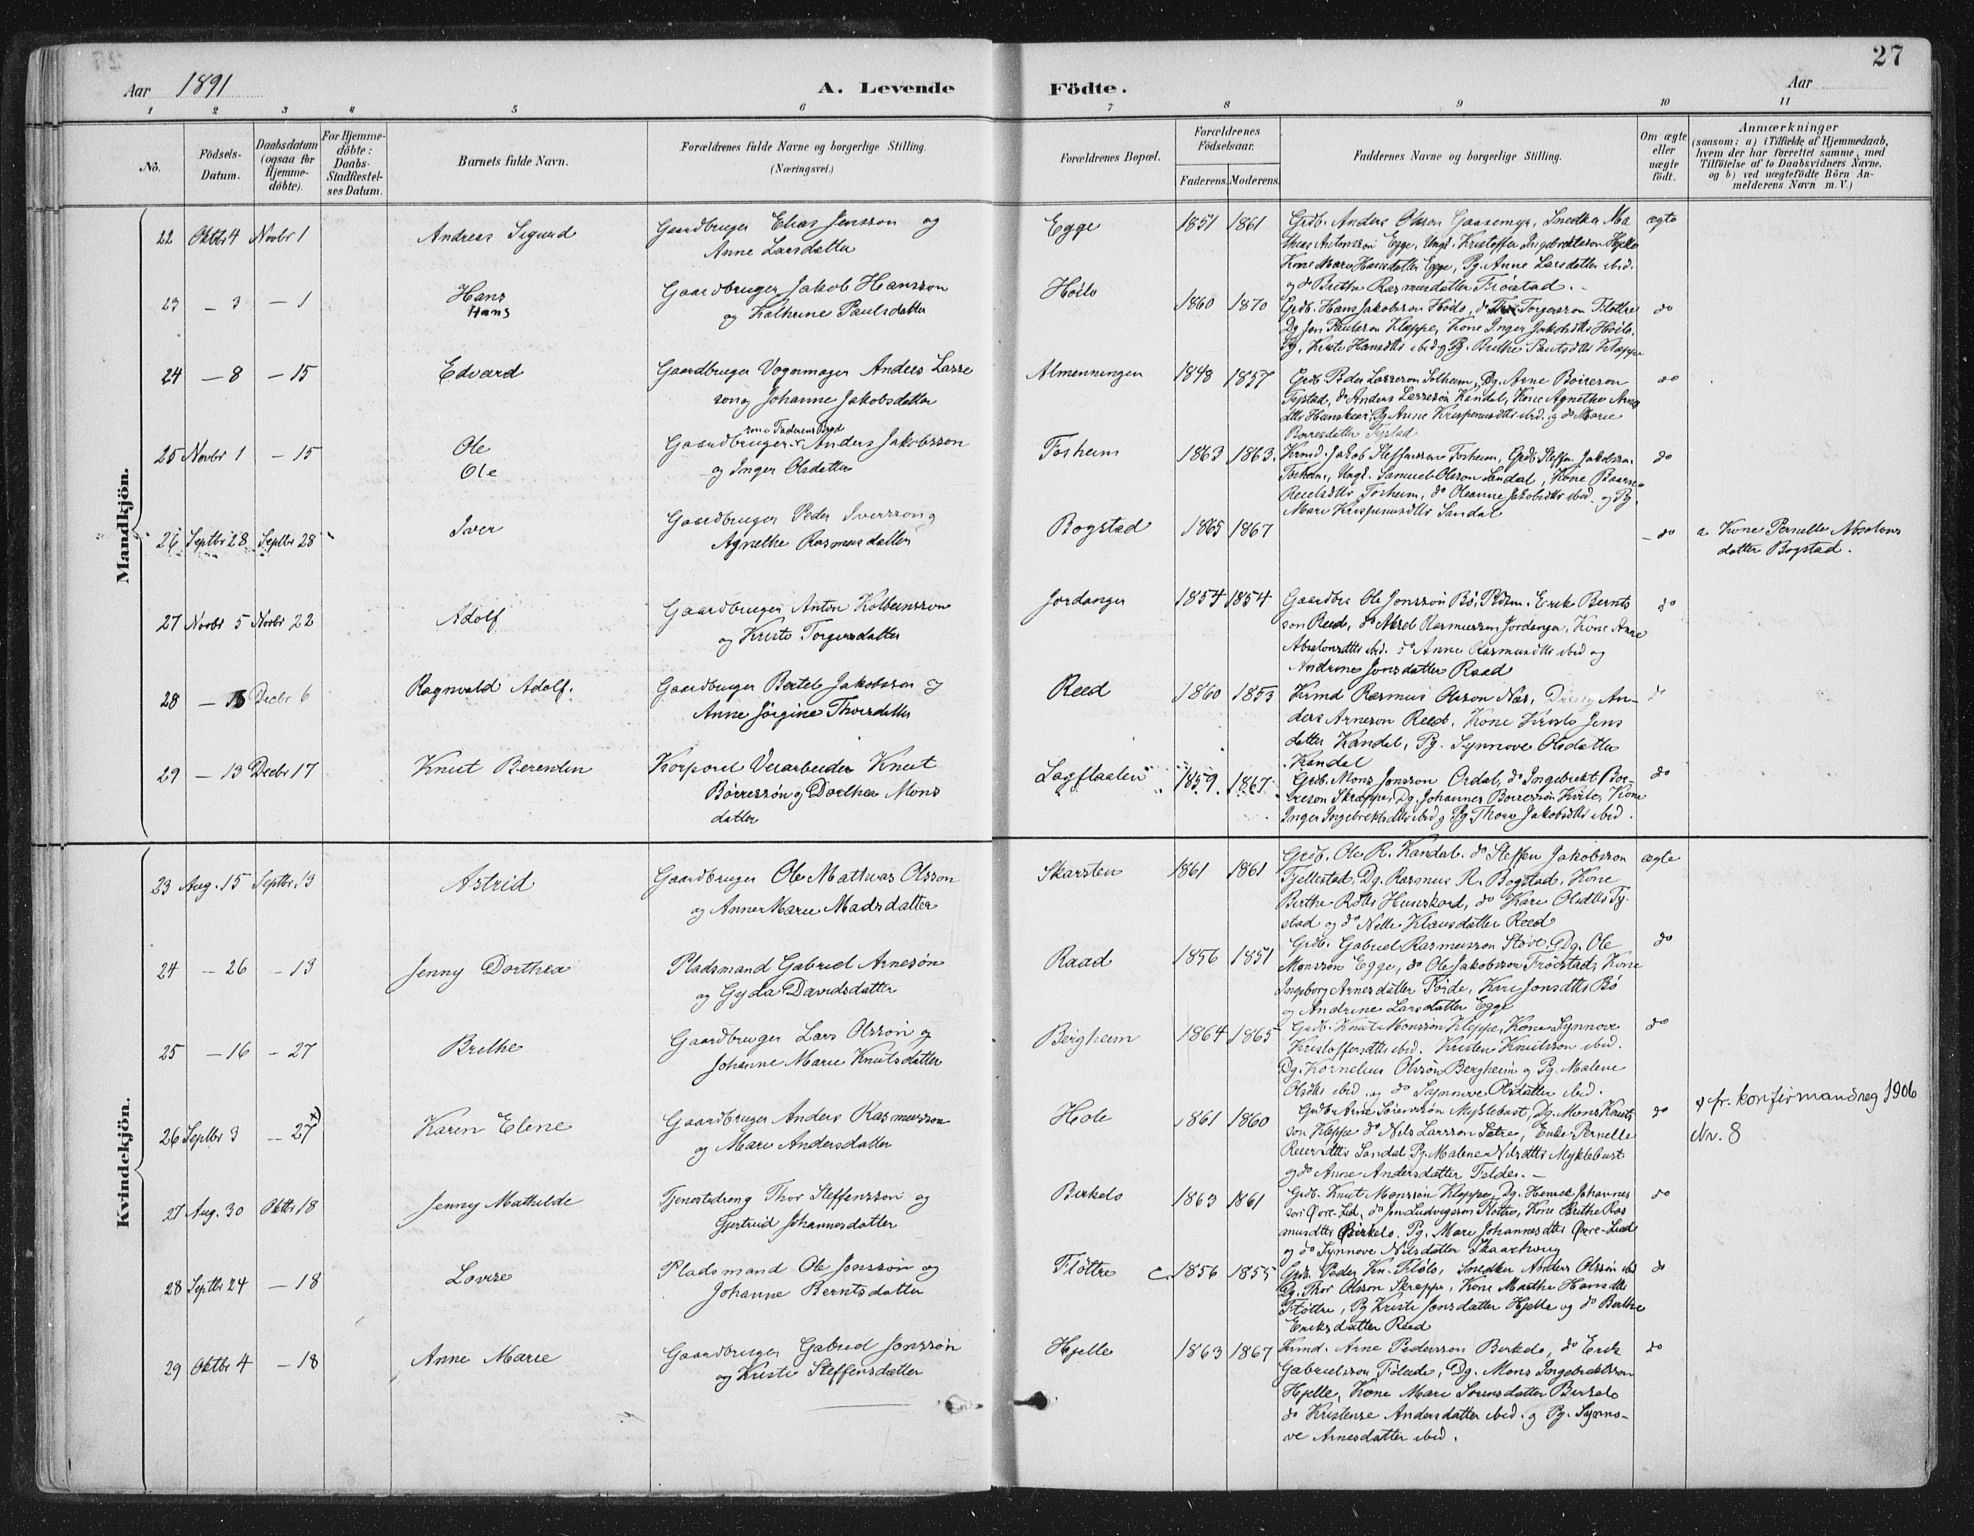 27
Aar 1891
A. Levende
Födte.
Aar
1 2 3 4 5 6 7 8 9 10 11
No.
Födsels-Datum.
Daabsdatum (ogsaa for Hjemme-döbte).
For Hjemme-döbte: Daabs-Stadfæstel-ses Datum.
Barnets fulde Navn.
Forældrenes fulde Navne og borgerlige Stilling.
(Næringsvei.)
Forældrenes Bopæl.
Forældrenes Födselsaar.
Faderens. Moderens.
Faddernes Navne og borgerlige Stilling.
Om ægte eller uægte födt.
Anmærkninger
(saasom: a) i Tilfælde af Hjemmedaab, hvem der har forrettet samme, med Tilföielse af to Daabsvidners Navne, og b) ved uægtefödte Börn An-melderens Navn m.V.)
Mandkjön.
22 Oktbr 4 Novbr 1 Andreas Sigurd Gaardbruger Elias Jensson og
Anne Larsdatter
Egge 1851 1861 Grdb. Anders Olsson Gaasemyr, Snedker Ma
thias Antonsson Egge, Ungk. Kristoffer Ingebrektsson Hjelle
Kone Mari Hansdatter Egge, Pg. Anne Larsdatter ibid.
og do Brithe Rasmusdatter Fröistad. -
ægte
23 - 3 - 1 Hans
Hans
Gaardbruger Jakob Hansson
og Kathrine Paulsdatter
Höilo 1860 1870 Grdb. Hans Jakobsson Höilo, do Torgersson Flöttre
Dg Jon Paulsson Kleppe, Kone Inger Jakobsdtr Höilo.
Pg. Kristi Hansdtr ibid og Pg. Brithe Paulsdtr Kleppe
do
24 - 8 - 15 Edvard Gaardbruger Vognmager Anders Lasse
son og Johanne Jakobsdatter
Almenningen 1848 1857 Grdb. Peder Lassesön Solheim, Dg. Arne Böiresön
Fystad, do Anders Lassesön Kandal, Kone Agnethe Arns
dtr Hunskaar, Pg Anne Krispinusdtr ibid. og do Marie
Börresdatter Fystad
do
25 Novbr 1 - 15 Ole
Ole
son i Faderens Bröd
Gaardbruger Anders Jakobsson
og Inger Olsdatter
Fosheim 1863 1863. Krmd. Jakob Steffensson Fosheim, Grdb. Steffen Jakobsson
Fosheim, Ungk. Samuel Olsson Sandal, Kone
Reielsdtr Fosheim, do Oleanne Jakobsdtr ibid. og Pg.
Mari Krispinusdtr Sandal
do
26 Septbr 28 Septbr 28 Iver Gaardbruger Peder Iversson og
Agnethe Rasmusdatter
Bogstad 1865 1867 - do a. Kone Pernelle Absalons
datter Bogstad.
27 Novbr 5 Novbr 22 Adolf Gaardbruger Anton Kolbeinsson
og Kristi Torgersdatter
Jordanger 1854 1854 Gaardbr. Ole Jonsson Bö, Pldsm. Erik Bernts
son Reed, do Abel Rasmussen Jordanger, Kone Anne
Absalonsdtr ibid. do Anne Rasmusdtr ibid og
Andrine Jonsdatter Raad
do
28 - 15 Decbr 6 Ragnvald Adolf. Gaardbruger Bertel Jakobsson og
Anne Jörgine Thorsdatter
Reed 1860 1853 Krmd Rasmus Olsson Næs, Dreng An-
ders Arneson Reed, Kone Kristi Jens
datter Kandal, Pg. Synnöve Olsdatter
Kandal
do
29 - 13 Decbr 17 Knut Berentin Korporal Veiarbeider Knut
Börresson og Dorthea Mons
datter
Lagflaaten 1859. 1867. Grdb. Mons Jonsson Ordal, do Ingebrikt Bör-
reson Skreppe, Dg. Johannes Börresson Hvite, Kone
Inger Ingebriktsdtr ibid og Pg Thora Jakobsdtr ibid.
do
Kvindekjön.
23 Aug. 15 Septbr. 13 Astrid Gaardbruger Ole Mathias Olsson
og Anne Marie Madsdatter
Skarsten 1861 1861 Grdb. Ole R. Kandal. do Steffen Jakobsson
Fjellestad, Dg. Rasmus R. Bogstad, Kone
Birthe Rdtr Hunskard, do Kari Olsdtr Fy-
stad og do Nelle Klausdatter Reed
ægte
24 - 26 - 13 Jenny Dorthea Pladsmand Gabriel Arnesön
og Gyda Davidsdatter
Raad 1856 1851 Grdb. Gabriel Rasmusson Støve, Dg. Ole
Monsson Egge, do Ole Jakobsson Fröistad, Kone
Ingeborg Arnesdatter Förde, Kari Jonsdtr Bö
og Andrine Larsdatter Egge
do
25 - 16 - 27 Brithe Gaardbruger Lars Olsson og
Johanne Marie Knutsdatter
Bergheim 1864 1865 Grdb. Knut Monsson Kleppe, Kone Synnöve
Kristoffersdtr ibid. Kristen Knutsson ibid.
Dg. Kornelius Olsson Bergheim og Pg. Malene
Olsdtr ibid. og do Synnöve Olsdatter ibid.
do
26 Septbr 3 - 27 +) Karen Elene Gaardbruger Anders Rasmusson
og Mari Andersdatter
Hole 1861 1860 Grdb. Arne Myklebust, Dg. Mons Knuts
son Kleppe do Nils Larsson Sætre, Enke Pernelle
Reiersdtr Sandal Pg. Malene Nilsdtr Myklebust
og do Anne Andersdatter Felde. -
do
fr. konfirmandreg 1906
Nr. 8
27 Aug. 30 Oktbr 18 Jenny Mathilde Tjenestedreng Thor Steffensson og
Gjertrud Johannesdatter
Birkelo 1863 1861 Grdb. Knut Monsson Kleppe, Dg. Henrik Johannes
son Øvre-Lid, do Jon Ludvigsson Flöttre, Kone Birthe Ras
musdtr Birkelo. Pg. Mari Johannesdtr Øvre-Lid
og do Synnöve Nilsdatter Skaarhaug
do
28 Septbr 24 - 18 Lovise Pladsmand Ole Jonsson og
Johanne Berntsdatter
Flöttre 1856 1855 Grdb. Peder Kn. Flölo, Snedker Anders Olsson ibid
Dg. Thor Olsson Skreppe, Kone Marthe Hansdtr
Flöttre, Pg Kristi Jonsdatter Hjelle og do Berthe
Eriksdatter Reed
do
29 Oktbr 4 - 18 Anne Marie Gaardbruger Gabriel Jonssön
og Kristi Steffensdatter
Hjelle 1863 1867 Krmd. Arne Pedersson Birkelo, do Erik
Gabrielsson Föleide, Dg. Mons Ingebriktsson
Hjelle, Kone Mari Sörensdatter Birkelo
do Kristense Andersdatter ibid. og Pg. Synnö-
ve Arnesdatter ibid.
do